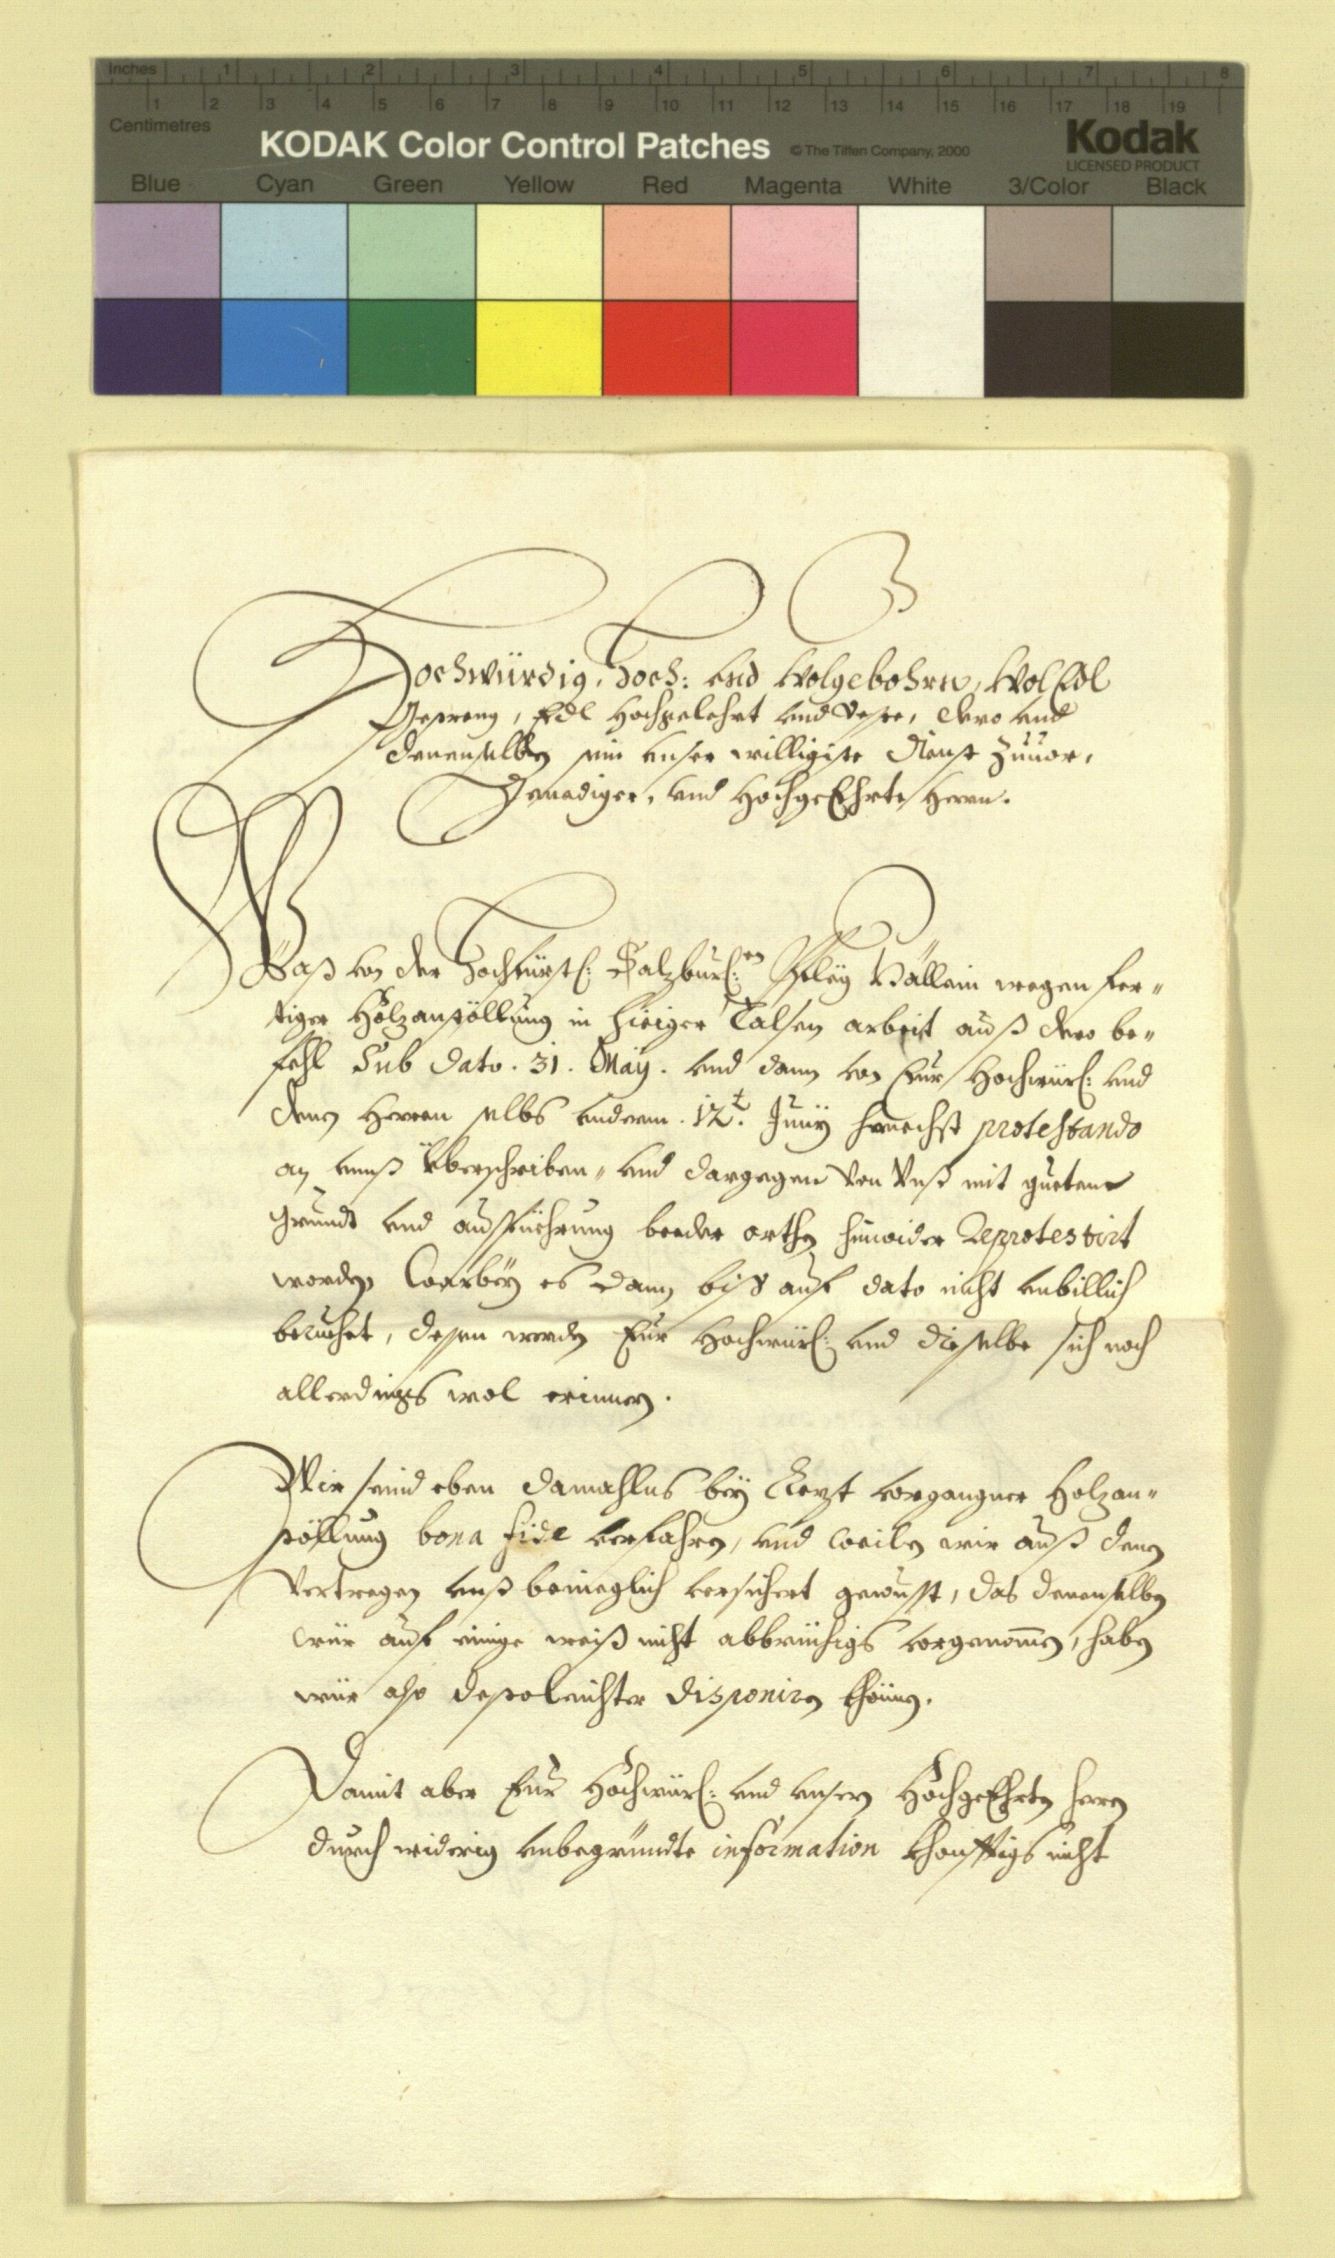 Inches 1 2 3 4 5 6 7 8
1 2 3 4 5 6 7 8 9 10 11 12 13 14 15 16 17 18 19
Centimetres
KODAK Color Control Patches © The Tiffen Company, 2000 Kodak
LICENSED PRODUCT
Blue Cyan Green Yellow Red Magenta White 3/Color Black
Hochwürdig, Hoch: vnd Wolgebohrn, WolEdl
Gestreng, Edl Hochgelehrt vnd Veste, dero vnd
denenselben sein vnser willigiste Dienst Zuuor,
Genediger, vnd HochgeEhrte Herrn.
Waß von der Hochfürstl: Salzburl:en Pfleg wegen fer-
tiger Holzanstöllung in hieiger arbeit auß dero be-
felch Sub dato. 31. May. vnd dann von Eur Hochwürl: vnd
denen Herren selbs vnderm. 12.t Juny hernechst protestando
an vnnß Yberschriben, vnd dargegen von Vnß mit guetem
Grundt vnd außfüehrung beeder orthen hinwider Reprotestirt
worden, Warbey es dann biß auf dato nicht vnbillich
beruehet, dessen werden Eur Hochwürl: vnd dieselbe sich noch
allerdings wol erinnern.
Wir seind eben damahlns bey vorgangner Holzan-
stöllung bona fide verfahren, vnd weilen wir auß denen
Verträgen vnß versichert gewust, das denenselben
wür auf einige weiß nicht abbrüchigs vorgenomen, haben
wür also destoleichter disponirn khönnen.
Damit aber Eur Hochwürl: vnd vnsern HochgeEhrten Herrn
durch widerig vnbegründte information khonfftigs nicht